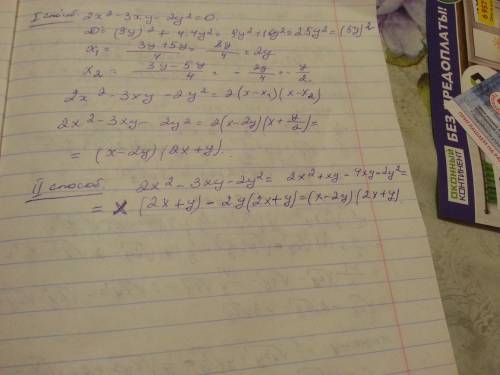 I способ. 2x²-3xy-2y²=0.
D=(3y)²+4·4y²=9y²+16y²=25y²=(5y)²
x₁=(3y+5y)/4=8y/4=2y
x₂=(3y-5y)/4=-2y/4=-y/2.
2x²-3xy-2y²=2(x-x₁)(x-x₂)
2x²-3xy-2y²=2(x-2y)(x+y/2)=
=(x-2y)(2x+y).
II способ. 2x²-3xy-2y²=2x²+xy-4xy-2y²=
=x(2x+y)-2y(2x+y)=(x-2y)(2x+y)
БЕЗ ПРЕДОПЛАТЫ!
ОКОННЫЙ
КОНТИНЕНТ